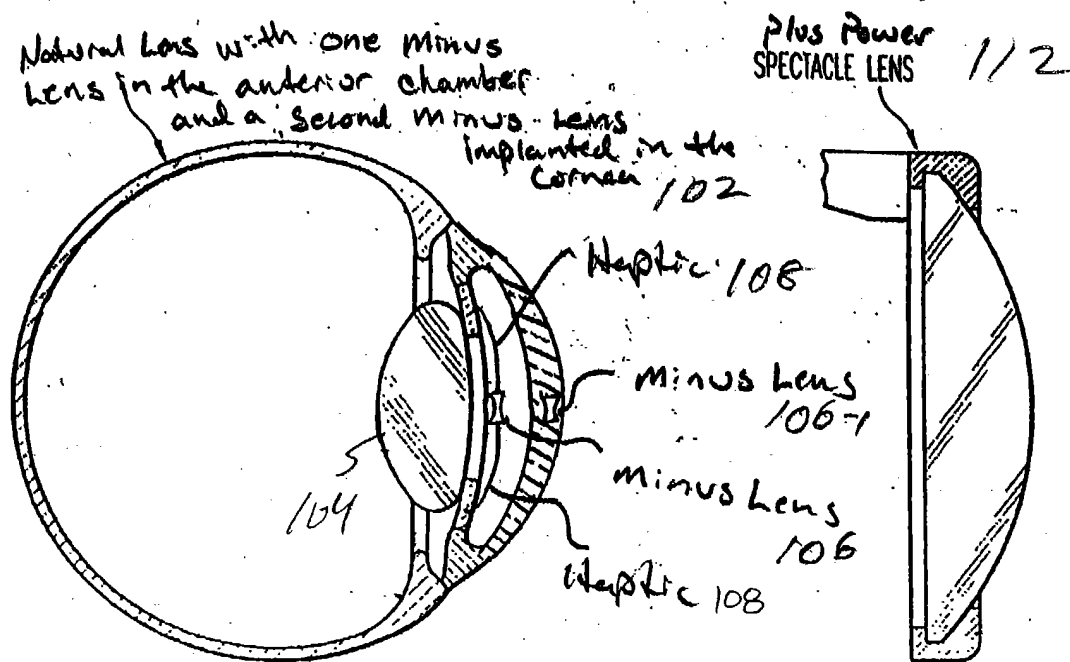 Natural Lens with one minus
Lens in the anterior chamber
and a second minus lens
implanted in the
cornea 102
Plus Power
SPECTACLE LENS 112
Haptic 108
minus Lens
106-1
minus Lens
106
Haptic 108
104